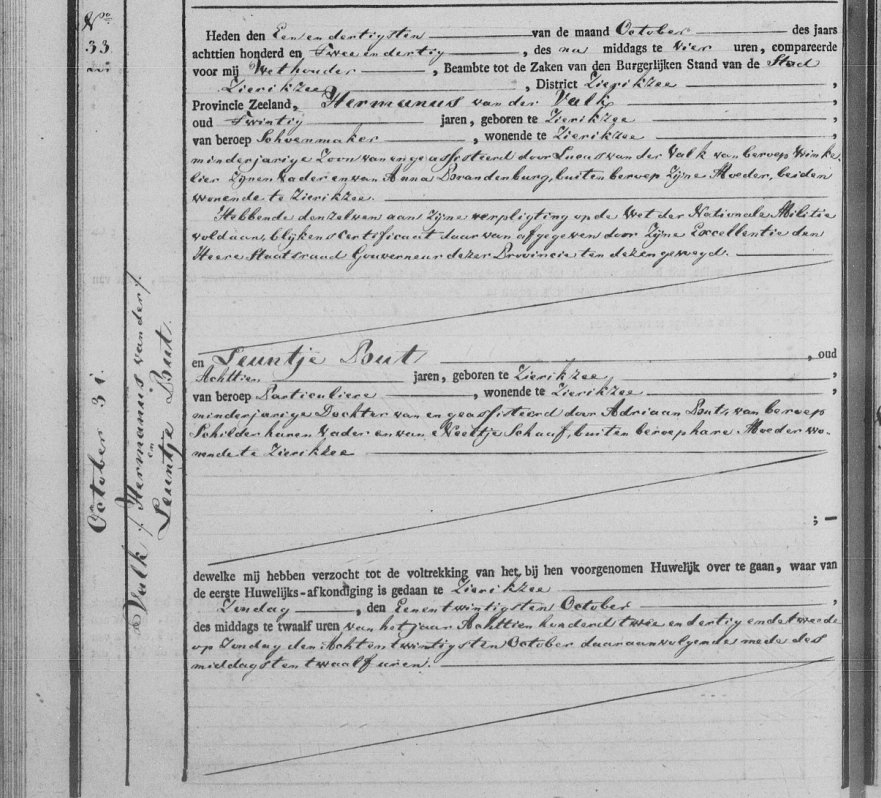 No
33
October 31.
Valk / Hermanus van der /.
en
Leuntje But.
Heden den Een en dertigsten van de maand October des jaars
achttien honderd en Twee en dertig, des na middags te vier uren, compareerde
voor mij Wethouder, Beambte tot de Zaken van den Burgerlijken Stand van de Stad
Zierikzee, District Zierikzee,
Provincie Zeeland, Hermanus van der Valk
oud Twintig jaren, geboren te Zierikzee,
van beroep Schoenmaker, wonende te Zierikzee,
minderjarige Zoon van en geassisteerd door Lucas van der Valk van beroep Winke-
lier Zijnen Vader en van Anna Brandenburg, buiten beroep Zijne Moeder, beiden
wonende te Zierikzee.
Hebbende denzelven aan Zijne verpligting op de Wet der Nationale Militie
voldaan, blijkens Certificaat daarvan afgegeven door Zijne Excellentie den
Heere Staatsraad Gouverneur dezer Provincie ten dezen gevoegd.
en Leuntje But, oud
Achttien jaren, geboren te Zierikzee,
van beroep Particuliere, wonende te Zierikzee,
minderjarige Dochter van en geassisteerd door Adriaan But, van beroep
Schilder haren Vader en van Neeltje Schaaf, buiten beroep hare Moeder wo-
nende te Zierikzee
; —
dewelke mij hebben verzocht tot de voltrekking van het, bij hen voorgenomen Huwelijk over te gaan, waar van
de eerste Huwelijks-afkondiging is gedaan te Zierikzee
Zondag, den Eenentwintigsten October,
des middags te twaalf uren van het jaar Achttien honderd twee en dertig en de tweede
op Zondag den Achtentwintigsten October daaraanvolgende mede des
middags ten twaalf uren.